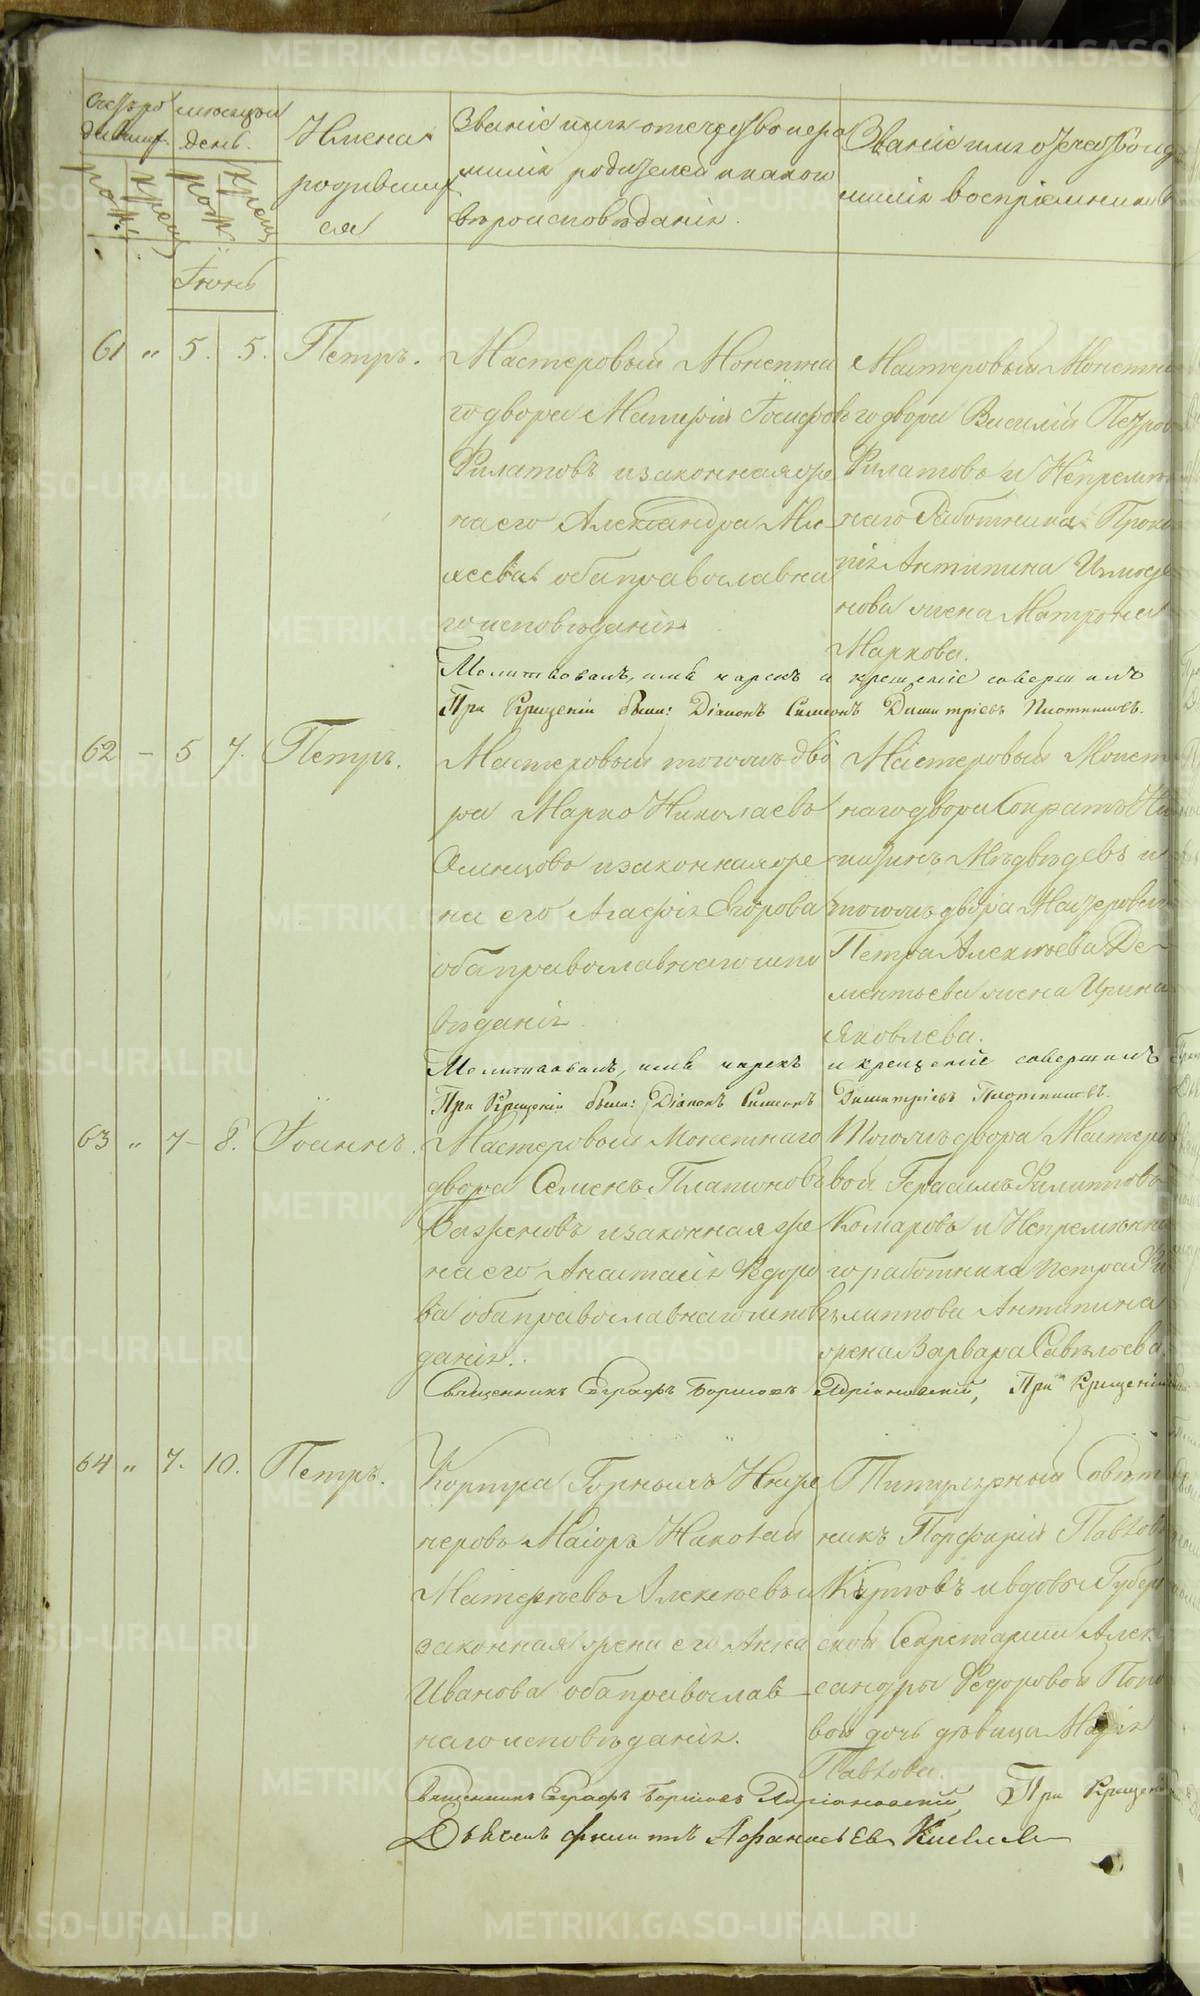 Счетъ ро
дивших.
рожд.
крещ.
Мѣсяцъ и
день.
рож.
крещ.
Имена
родивших
ся
Званіе имя отечество и фа
милія родителей и какого
вѣроисповѣданія.
Званіе имя отечество и фа
милія воспріемниковъ
Іюнь
61 " 5. 5. Петръ.
Мастеровый Монетна
го двора Матфій Іосифовъ
Филатовъ и законная же
на его Александра Ми
хеева оба православна
го исповѣданія
Мастеровый Монетна
го двора Василій Петров
Филатовъ и Непремѣн
наго Работника Проко
пія Антипина
нова жена Матрона
Маркова.
Молитвовалъ, имя нарекъ и крещеніе совершилъ
При Крещеніи былъ: Діаконъ Симеонъ Димитріевъ Плотниковъ.
62 - 5 7. Петръ.
Мастеровый тогожъ дво
ра Марко Николаевъ
Олинцовъ и законная же
на его Агафія Егорова
оба православнаго испо
вѣданія
Мастеровый Монет
наго двора Сократъ Ни
китинъ Медвѣдевъ и
тогожъ двора Мастеров
Петра Алексѣева Де-
ментьева жена Ирина
Яковлева.
Молитвовалъ, имя нарекъ и крещеніе совершилъ
При Крещеніи былъ: Діаконъ Симеонъ Димитріевъ Плотниковъ.
63 " 7- 8. Іоаннъ.
Мастеровый Монетнаго
двора Семенъ Платоновъ
Баженовъ и законная же
на его Анастасія Ѳедоро
ва оба православнаго исповѣ
данія.
Тогожъ двора Мастеро
вой Герасимъ Филиповъ
Комаровъ и Непремѣнна
го работника Петра Фи
липпова Антипина
жена Варвара Савельева.
Священникъ Евграфъ Борисовъ Адріановскій, При Крещеніи
64 " 7. 10. Петръ.
Корпуса Горныхъ Инже
неровъ Маіоръ Николай
Матфѣевъ Алексѣевъ и
законная жена его Анна
Иванова оба православ-
наго исповѣданія.
Титулярный Совѣт
никъ Порфирій Павлов
и вдовы Губерн
ской Секретарши Алек
сандры Ѳедоровой Попо
вой дочь дѣвица Марія
Павлова.
Священникъ Евграфъ Борисовъ Адріановскій При Крещені
Дьячекъ Филиппъ Афанасьевъ Киселев
METRIKI.GASO-URAL.RU